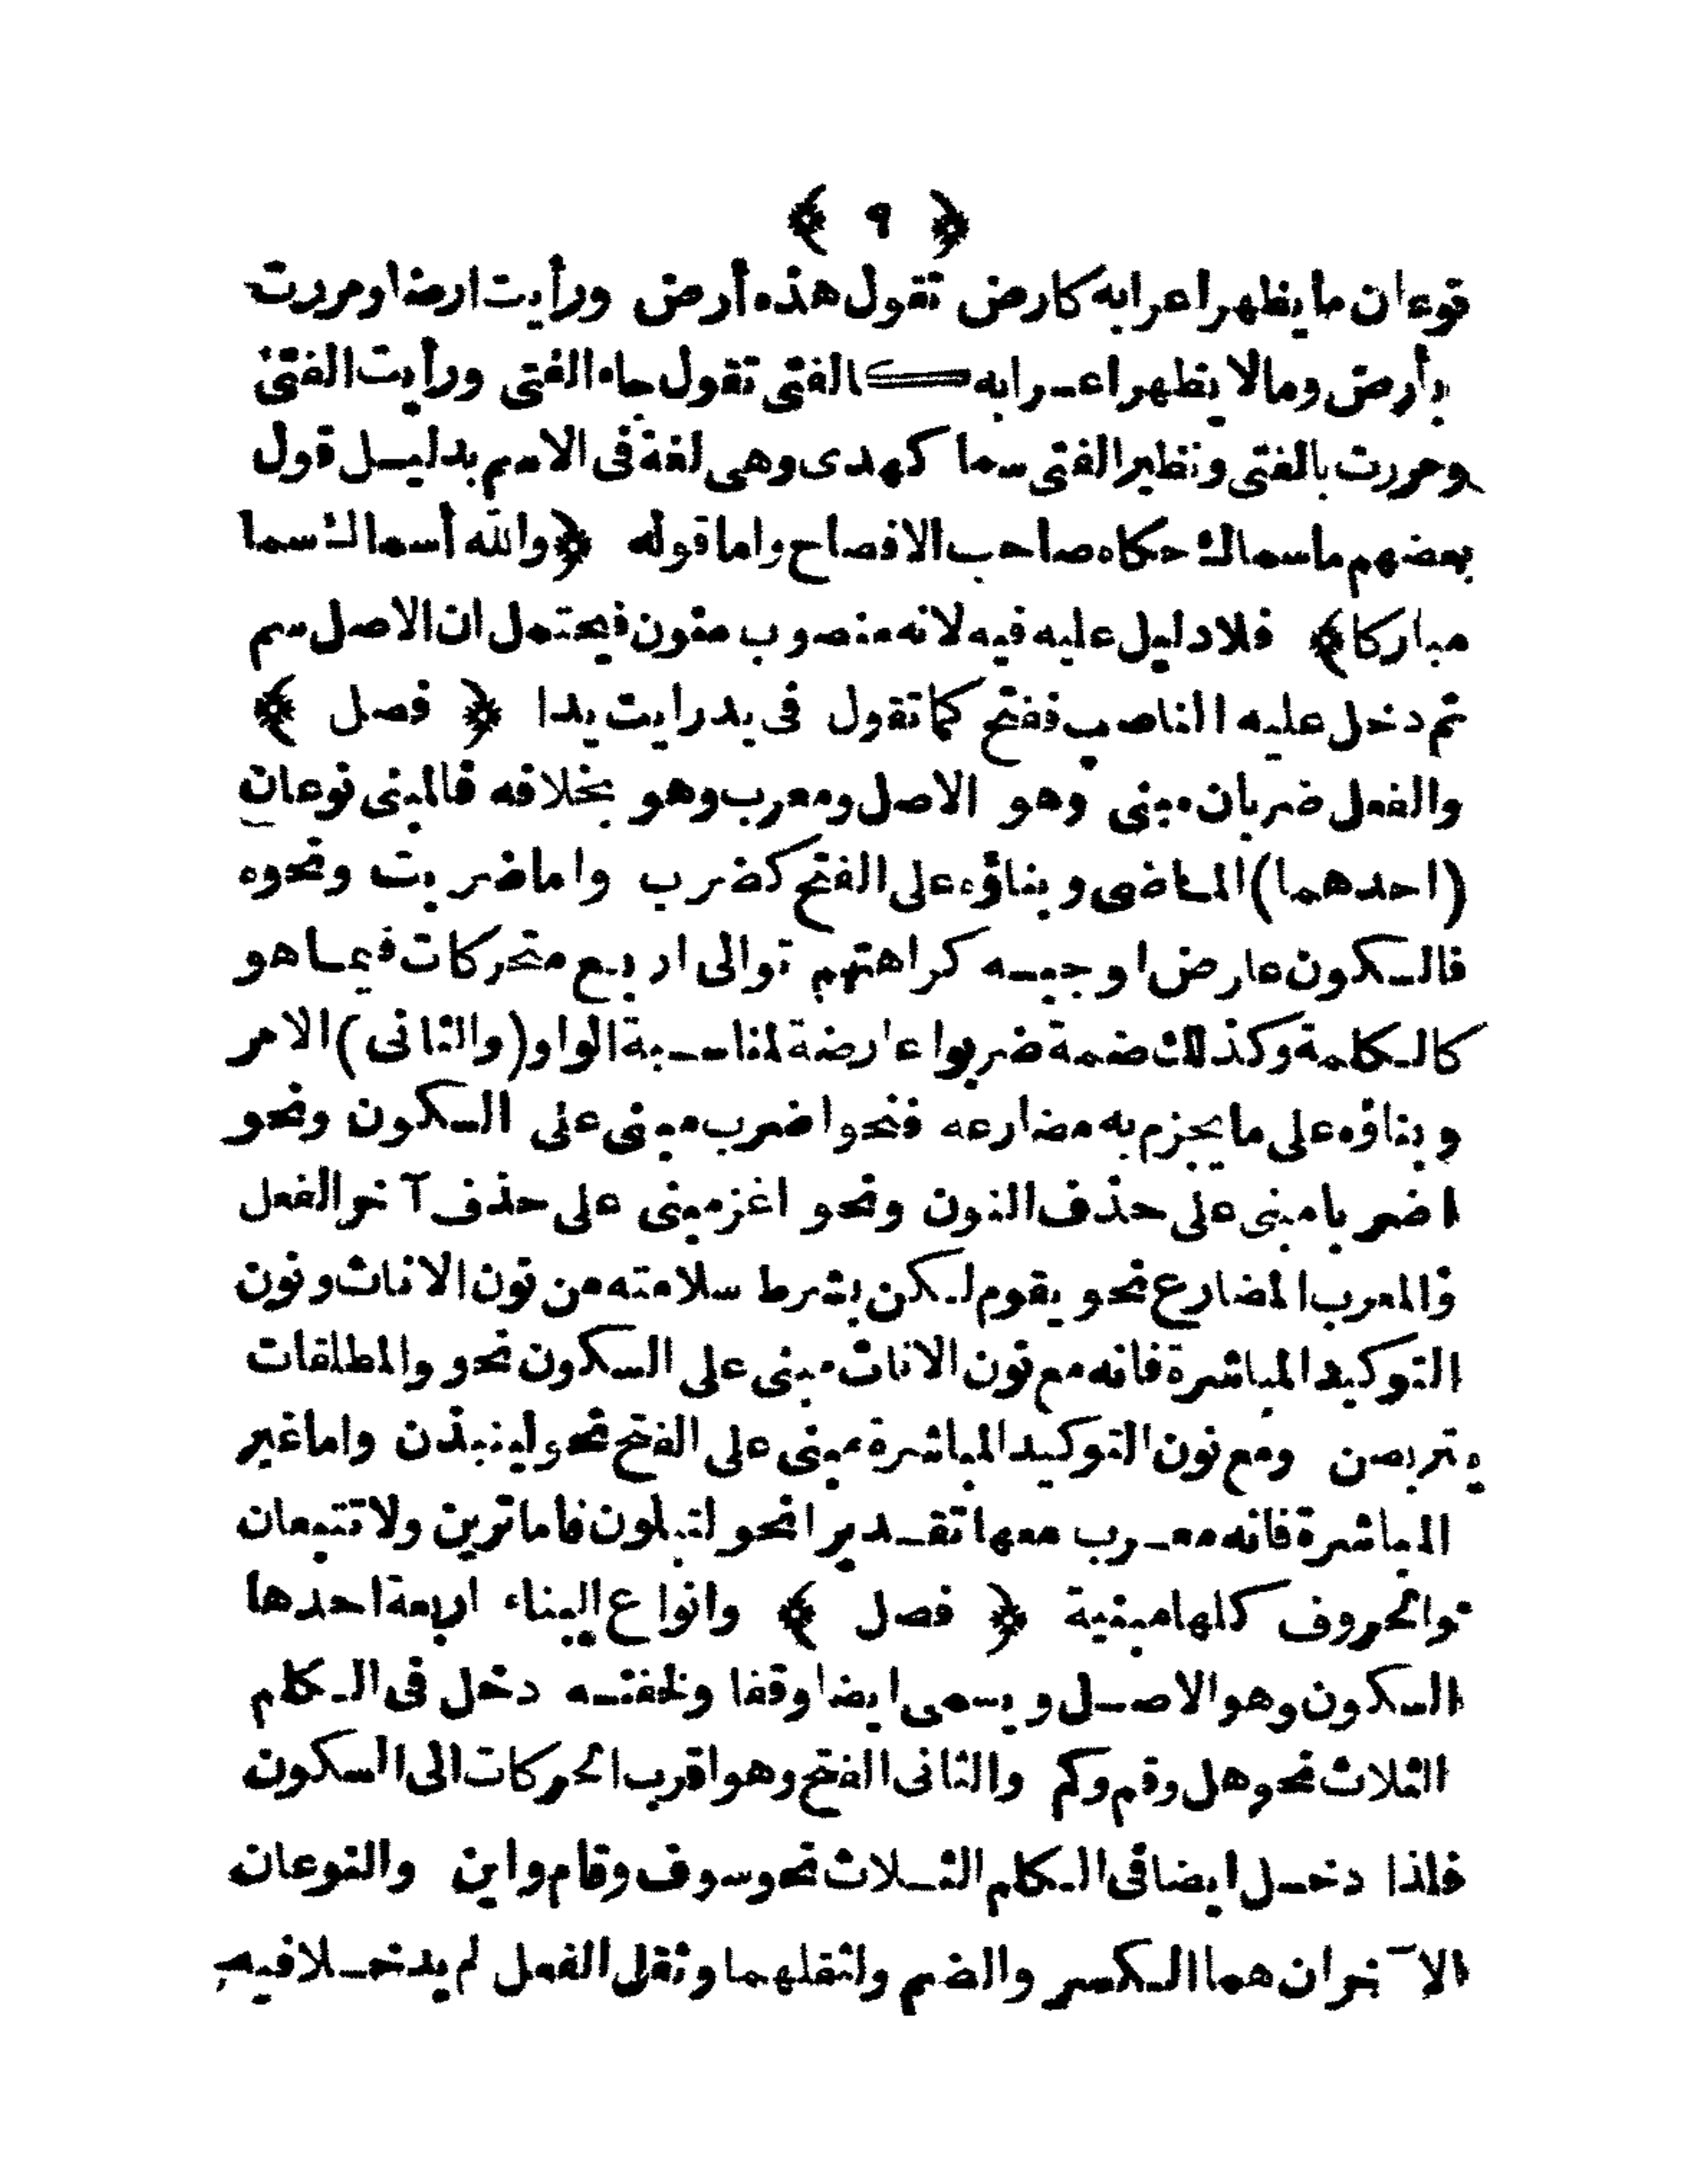 ﴿ ٩ ﴾
نوعان ما يظهر اعرابه كارض تقول هذه أرض ورأيت ارضا ومررت
بأرض ومالا يظهر اعرابه كالفتى تقول جاء الفتى ورأيت الفتى
ومررت بالفتى ونظير الفتى سما كهدى وهى لغة فى الاسم بدليل قول
بعضهم ماسماك حكاه صاحب الافصاح واما قوله ﴿والله أسماك سما
مباركا﴾ فلا دليل عليه فيه لانه منصوب منون فيحتمل ان الاصل سم
ثم دخل عليه الناصب ففتح كما تقول فى يد رايت يدا ﴿ فصل ﴾
والفعل ضربان مبنى وهو الاصل ومعرب وهو بخلافه فالمبنى نوعان
(احدهما) الماضى وبناؤه على الفتح كضرب واما ضربت ونحوه
فالسكون عارض اوجبه كراهتهم توالى اربع متحركات فيما هو
كالكلمة وكذلك ضمة ضربوا عارضة لمناسبة الواو (والثانى) الامر
وبناؤه على ما يجزم به مضارعه فنحو اضرب مبنى على السكون ونحو
اضربا مبنى على حذف النون ونحو اغز مبنى على حذف آخر الفعل
والمعرب المضارع نحو يقوم لكن بشرط سلامته من نون الاناث ونون
التوكيد المباشرة فانه مع نون الاناث مبنى على السكون نحو والمطلقات
يتربصن ومع نون التوكيد المباشرة مبنى على الفتح نحو لينبذن واما غير
المباشرة فانه معرب معها تقديرا نحو لتبلون فاما ترين ولا تتبعان
والحروف كلها مبنية ﴿ فصل ﴾ وانواع البناء اربعة احدها
السكون وهو الاصل ويسمى ايضا وقفا ولخفته دخل فى الكلم
الثلاث نحو هل وقم وكم والثانى الفتح وهو اقرب الحركات الى السكون
فلذا دخل ايضا فى الكلم الثلاث نحو سوف وقام واين والنوعان
الآخران هما الكسر والضم ولثقلهما وثقل الفعل لم يدخلا فيه